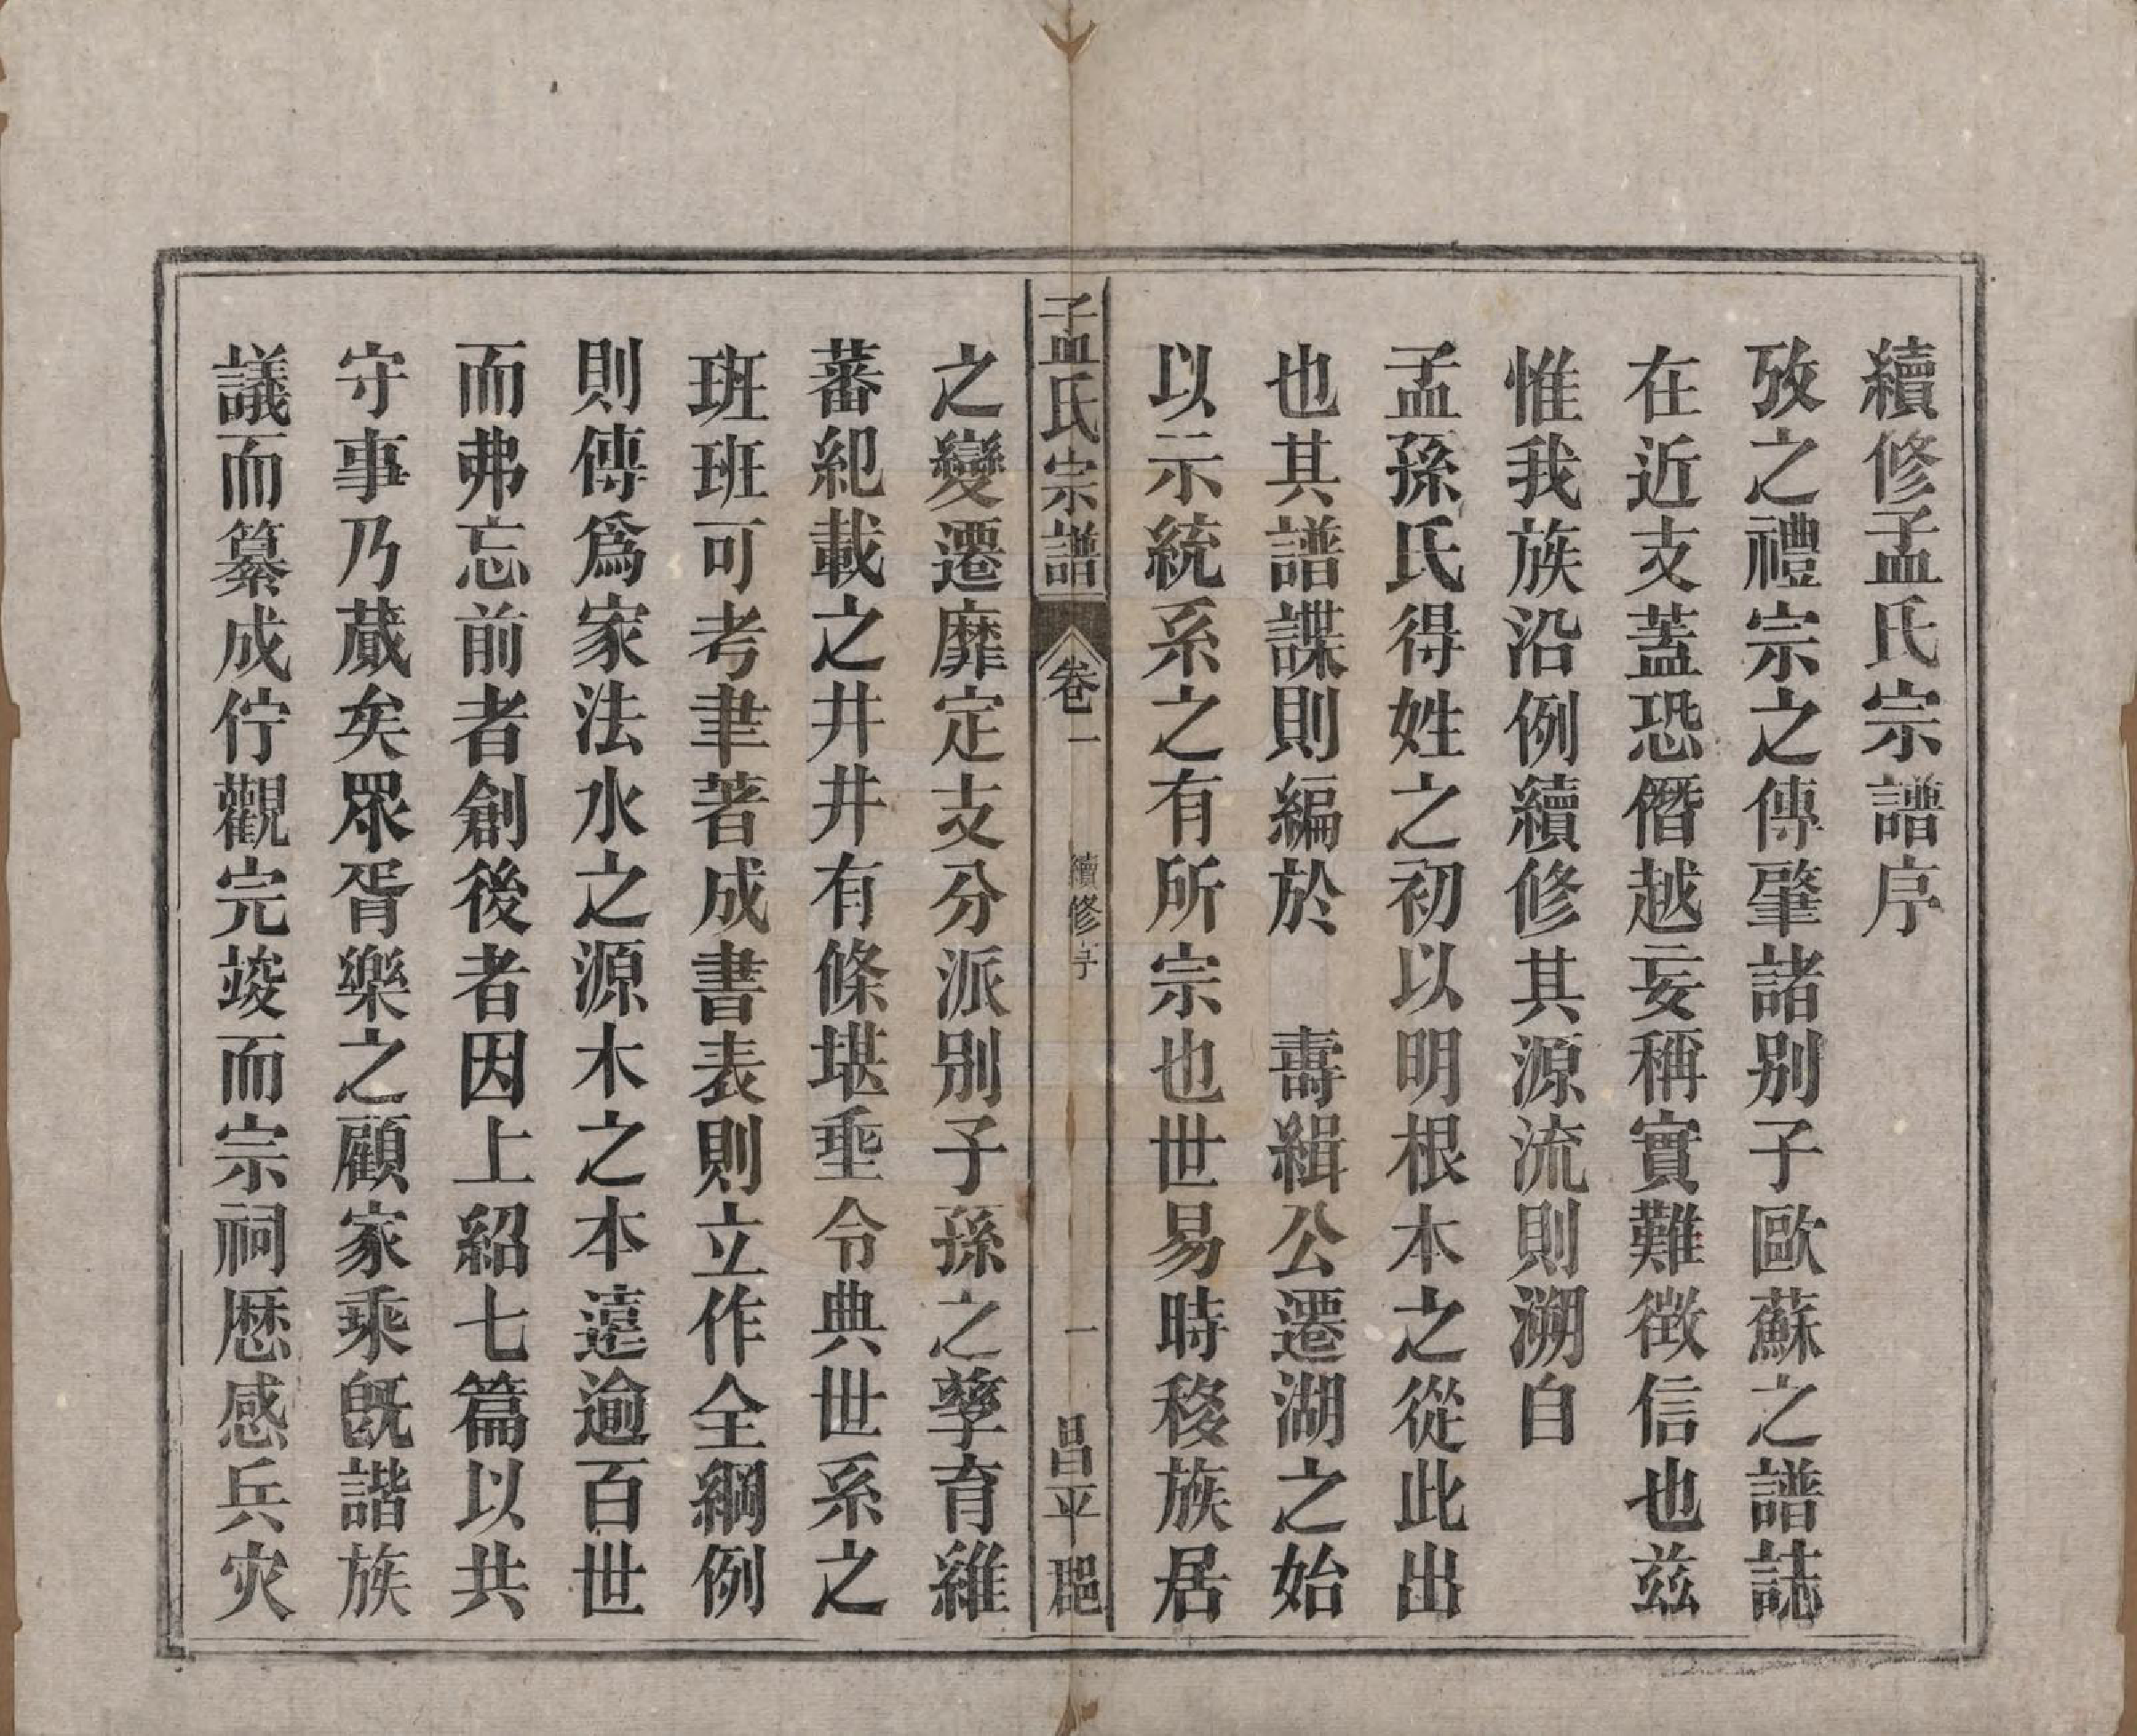 續修孟氏宗譜序
攷之禮宗之傳肇諸別子歐蘇之譜誌
在近支蓋恐僭越妄稱實難徴信也兹
惟我族沿例續修其源流則溯自
孟孫氏得姓之初以明根本之從此出
也其譜諜則編於　壽緝公遷湖之始
以示統系之有所宗也世易時移族居
孟氏宗譜
卷一
續修序
一
昌平郡
之變遷靡定支分派別子孫之孳育雖
蕃紀載之井井有條堪垂令典世系之
班班可考聿著成書表則立作全綱例
則傳爲家法水之源木之本遠逾百世
而弗忘前者創後者因上紹七篇以共
守事乃蕆矣眾胥樂之顧家乘既諧族
議而纂成佇觀完竣而宗祠歷感兵灾